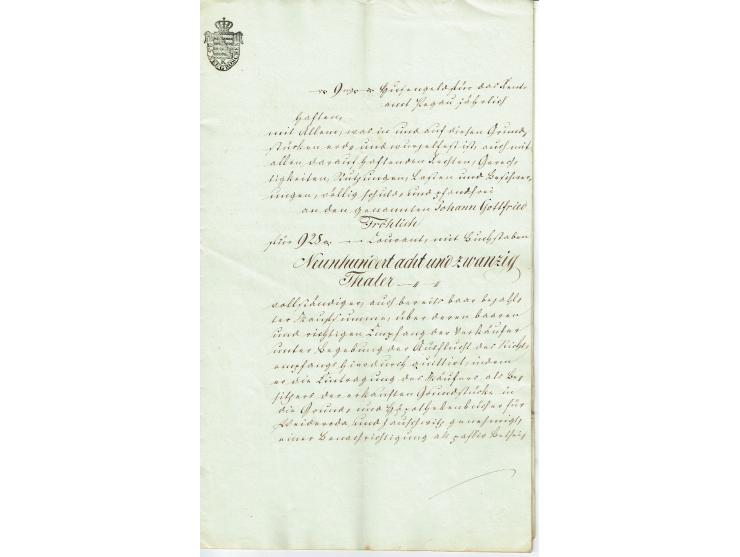 9 Hufengeld für das Rent-
amt Pegau jährlich
haften,
mit Allem, was in und auf diesen Grund-
stücken erd- und wurzelfest ist, auch mit
allen darauf haftenden Rechten, Gerech-
tigkeiten, Nutzungen, Lasten und Beschwer-
ungen, völlig schuld- und pfandfrei
an den genannten Johann Gottfried
Fröhlich
für 928 Courant, mit Buchstaben
Neunhundert acht und zwanzig
Thaler
vollständiger, auch bereits baar bezahl-
ter Kaufsumme, über deren baaren
und richtigen Empfang der Verkäufer
unter Begebung der Ausflucht des Nicht-
empfangs hierdurch quittirt, indem
er die Eintragung des Käufers als Be-
sitzers der erkauften Grundstücke in
die Grund- und Hypothekenbücher für
und genehmigt,
einer Benachrichtigung